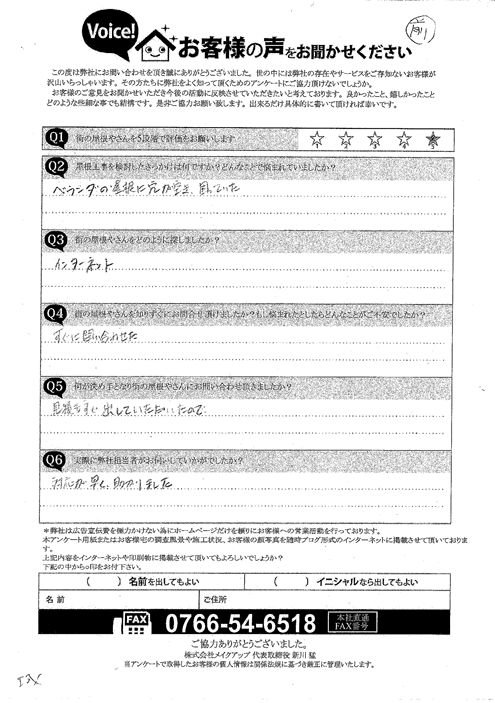 Voice!
お客様の声をお聞かせください
この度は弊社にお問い合わせを頂き誠にありがとうございました。世の中には弊社の存在やサービスをご存知ないお客様が
沢山いらっしゃいます。その方たちに弊社をよく知って頂くためのアンケートにご協力頂けないでしょうか。
お客様のご意見をお聞かせいただき今後の活動に反映させていただきたいと考えております。良かったこと、嬉しかったこと
どのような些細な事でも結構です。是非ご協力お願い致します。出来るだけ具体的に書いて頂ければ幸いです。
Q1 街の屋根やさんを5段階で評価をお願いします ☆ ☆ ☆ ☆ ★
Q2 屋根工事を検討したきっかけは何ですか?どんなことで悩まれていましたか?
ベランダの屋根に穴が空き、困っていた
Q3 街の屋根やさんをどのように探しましたか?
インターネット
Q4 街の屋根やさんを知りすぐにお問合せ頂けましたか?もし悩まれたとしたらどんなことがご不安でしたか?
すぐに問い合わせた
Q5 何が決め手となり街の屋根やさんにお問い合わせ頂きましたか?
見積もすぐ出していただいたので
Q6 実際に弊社担当者がお伺いしていかがでしたか?
対応が早く、助かりました
*弊社は広告宣伝費を極力かけない為にホームページだけを頼りにお客様への営業活動を行っております。
本アンケート用紙またはお客様宅の調査風景や施工状況、お客様の顔写真を随時ブログ形式のインターネットに掲載させて頂いておりま
す。
上記内容をインターネットや印刷物に掲載させて頂いてもよろしいでしょうか?
下記の中から○印をお付下さい。
( ) 名前を出してもよい ( ) イニシャルなら出してもよい
名 前 ご住所
FAX 0766-54-6518 本社直通 FAX番号
ご協力ありがとうございました。
株式会社メイクアップ 代表取締役 新川 猛
※アンケートで取得したお客様の個人情報は関係法規に基づき厳正に管理いたします。